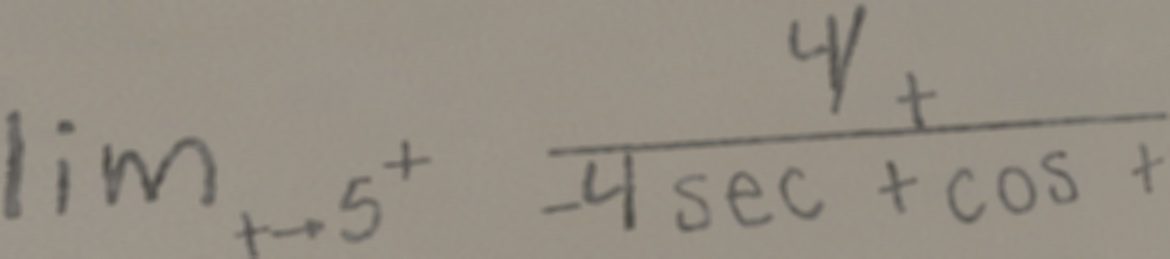 lim_{t→5^+} \frac{4t}{-4 sec t cos t}